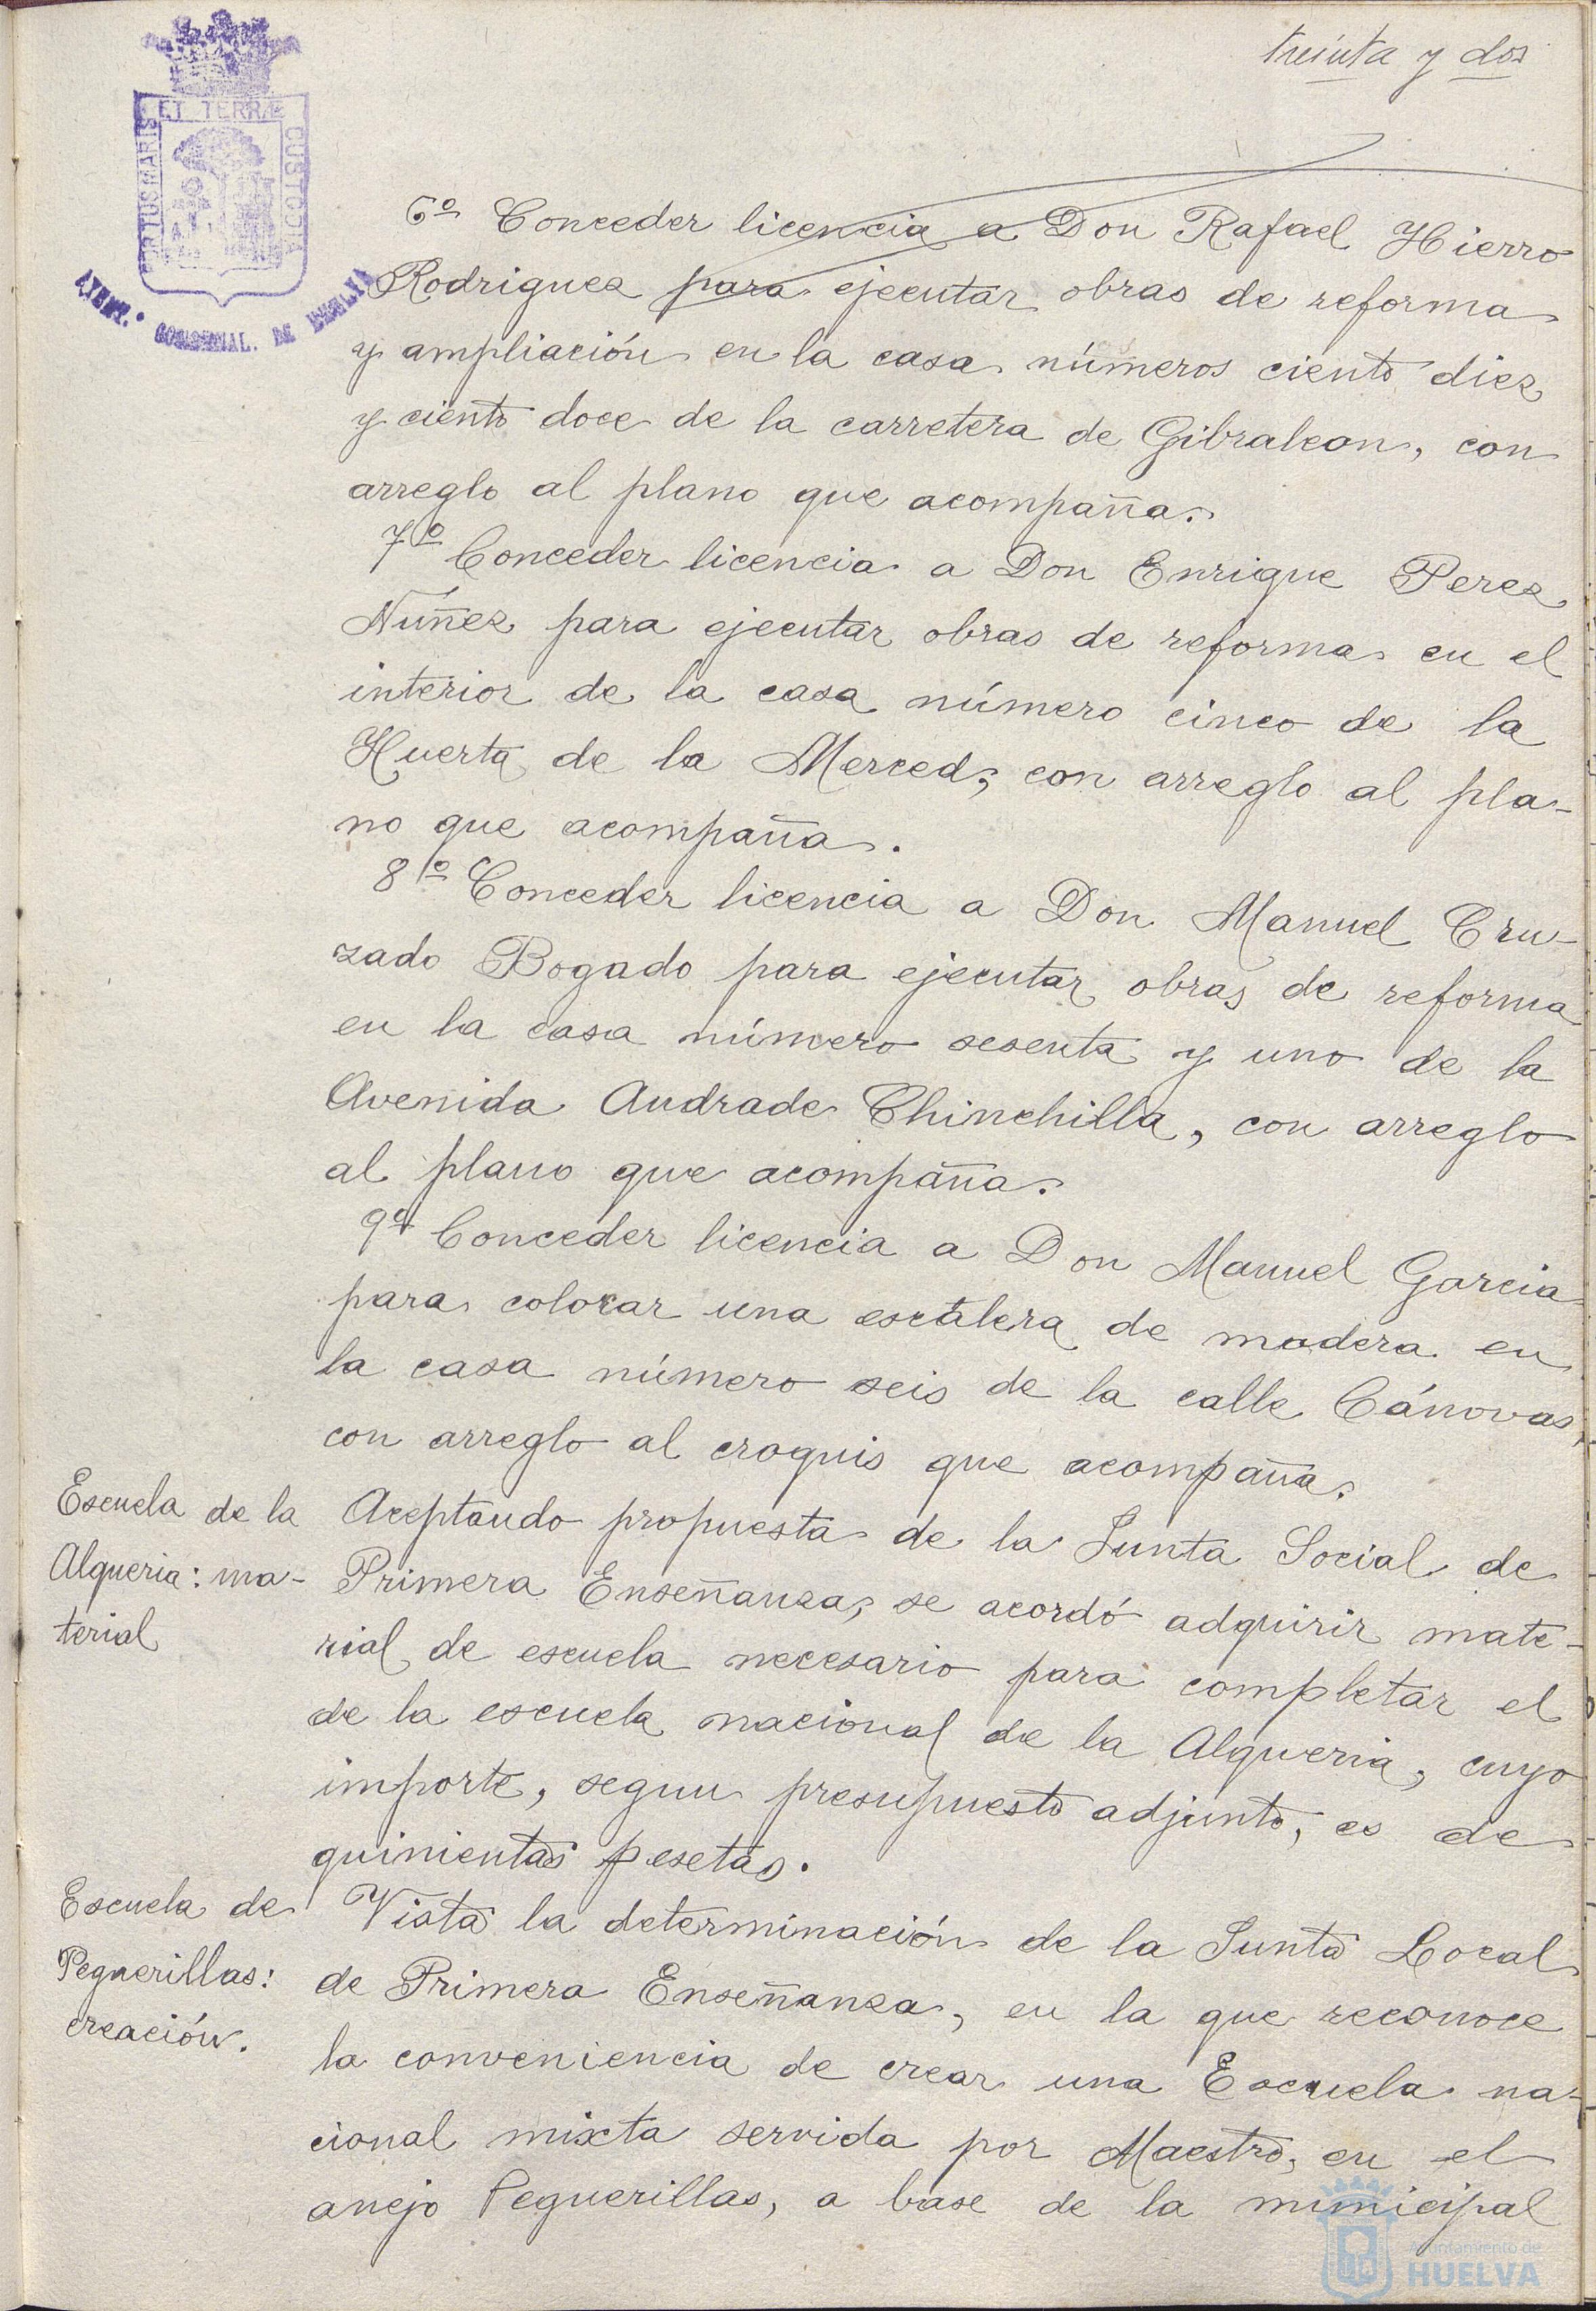 treinta y dos
PORTUS MARIS ET TERRÆ CUSTODIA
AYUNT.
DE HUELVA
6º Conceder licencia a Don Rafael Hierro
Rodriguez para ejecutar obras de reforma
y ampliación en la casa números ciento diez
y ciento doce de la carretera de Gibraleon, con
arreglo al plano que acompaña.
7º Conceder licencia a Don Enrique Perez
Nuñez para ejecutar obras de reforma en el
interior de la casa número cinco de la
Huerta de la Merced, con arreglo al pla-
no que acompaña.
8º Conceder licencia a Don Manuel Cru-
zado Bogado para ejecutar obras de reforma
en la casa número sesenta y uno de la
Avenida Andrade Chinchilla, con arreglo
al plano que acompaña.
9º Conceder licencia a Don Manuel Garcia
para colocar una escalera de madera en
la casa número seis de la calle Cánovas,
con arreglo al croquis que acompaña.
Escuela de la
Alqueria: ma-
terial
Aceptando propuesta de la Junta Social de
Primera Enseñanza, se acordó adquirir mate-
rial de escuela necesario para completar el
de la escuela nacional de la Alqueria, cuyo
importe, segun presupuesto adjunto, es de
quinientas pesetas.
Escuela de
Peguerillas:
creación.
Vista la determinación de la Junta Local
de Primera Enseñanza, en la que reconoce
la conveniencia de crear una Escuela na-
cional mixta servida por Maestro, en el
anejo Peguerillas, a base de la municipal
Ayuntamiento de
HUELVA